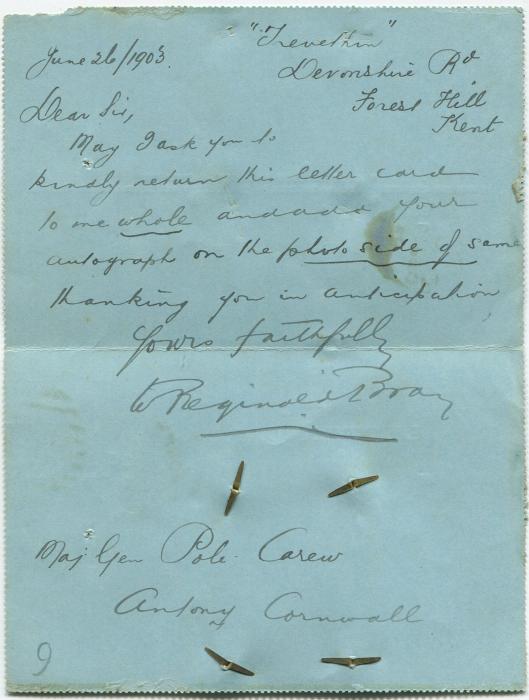 "Trevethin"
June 26/1903.
Devonshire Rd
Forest Hill
Kent
Dear Sir,
May I ask you to
kindly return this letter card
to me whole and add your
autograph on the photo side of same
thanking you in anticipation
Yours faithfully
W Reginald Bray
Maj Gen Pole-Carew
Antony Cornwall
9